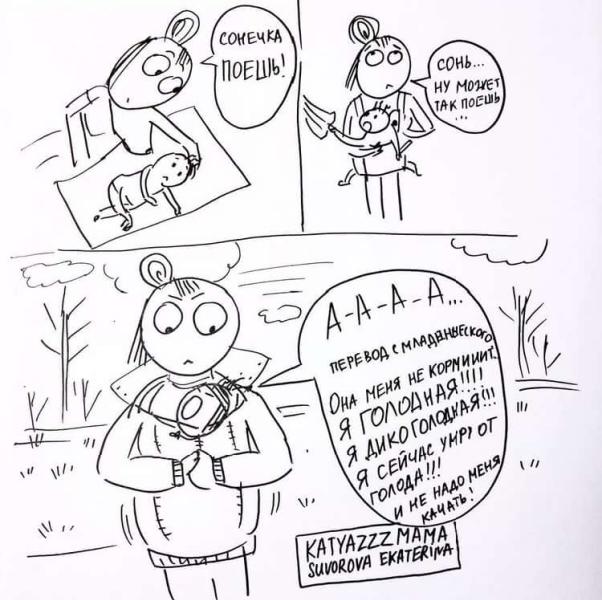 СОНЕЧКА
ПОЕШЬ!
СОНЬ...
НУ МОЖЕТ
ТАК ПОЕШЬ
...
А-А-А-А...
ПЕРЕВОД С МЛАДЕНЧЕСКОГО:
ОНА МЕНЯ НЕ КОРМИИИТ..
Я ГОЛОДНАЯ!!!!
Я ДИКО ГОЛОДНАЯ!!!
Я СЕЙЧАС УМРУ ОТ
ГОЛОДА!!!
И НЕ НАДО МЕНЯ
КАЧАТЬ!
KATYAZZZMAMA
SUVOROVA EKATERINA